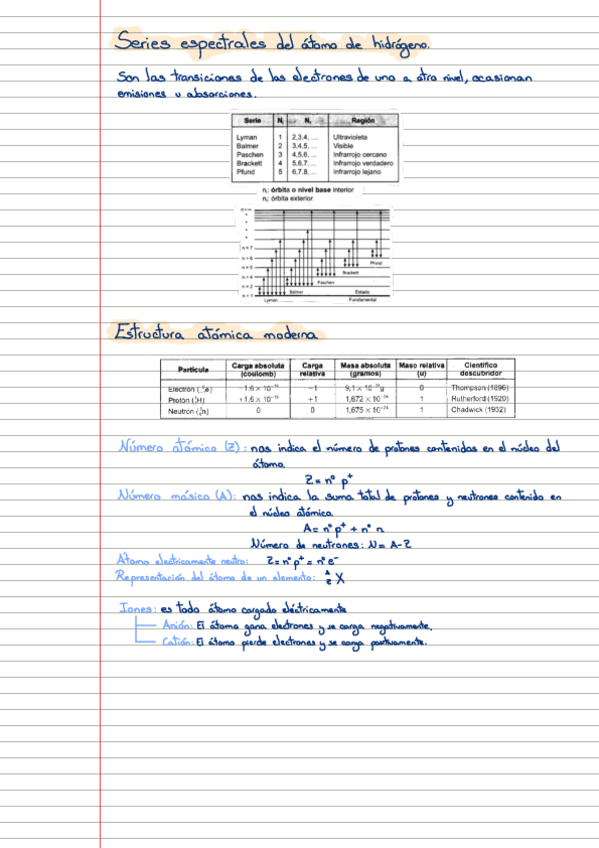 Series espectrales del átomo de hidrógeno.
Son las transiciones de los electrones de uno a otro nivel, ocasionan
emisiones u absorciones.
Serie Nᵢ Nₛ Región
Lyman 1 2,3,4, ... Ultravioleta
Balmer 2 3,4,5, ... Visible
Paschen 3 4,5,6, ... Infrarrojo cercano
Brackett 4 5,6,7, ... Infrarrojo verdadero
Pfund 5 6,7,8, ... Infrarrojo lejano
órbita o nivel base interior
órbita exterior
n = 7
n = 6
n = 5
n = 4
n = 2
n = 1
Pfund
Brackett
Paschen
Balmer Estado
Lyman Fundamental
Estructura atómica moderna
Partícula Carga absoluta (coulomb) Carga relativa Masa absoluta (gramos) Maso relativa (u) Científico descubridor
Electrón −1 0 Thompson (1896)
Protón +1,6 × 10⁻¹⁹ +1 1,672 × 10⁻²⁴ 1 Rutherford (1920)
Neutrón 0 0 1,675 × 10⁻²⁴ 1 Chadwick (1932)
Número atómico (Z): nos indica el número de protones contenidos en el núcleo del
átomo.
Z = nº p⁺
Número másico (A): nos indica la suma total de protones y neutrones contenido en
el núcleo atómico.
A = nº p⁺ + nº n
Número de neutrones: N = A-Z
Átomo electricamente neutro: Z = nº p⁺ = nº e⁻
Representación del átomo de un elemento: ᴬ_Z X
Iones: es todo átomo cargado eléctricamente
Anión: El átomo gana electrones y se carga negativamente.
Catión: El átomo pierde electrones y se carga positivamente.